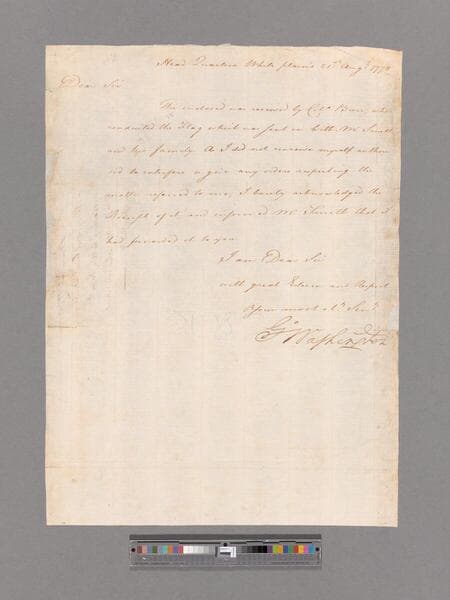 Head Quarters White plains 21st Augt 1778
Dear Sir
The enclosed was received by Colo Burr, who
conducted the Flag which was sent in with Mr Smith
and his family. As I did not conceive myself author
ized to interfere or give any orders respecting the
matter referred to me, I barely acknowledged the
Receipt of it and informed Mr Smith that I
had forwarded it to you
I am Dear Sir
with great Esteem and Respect
Your most Obt Servt
Go Washington